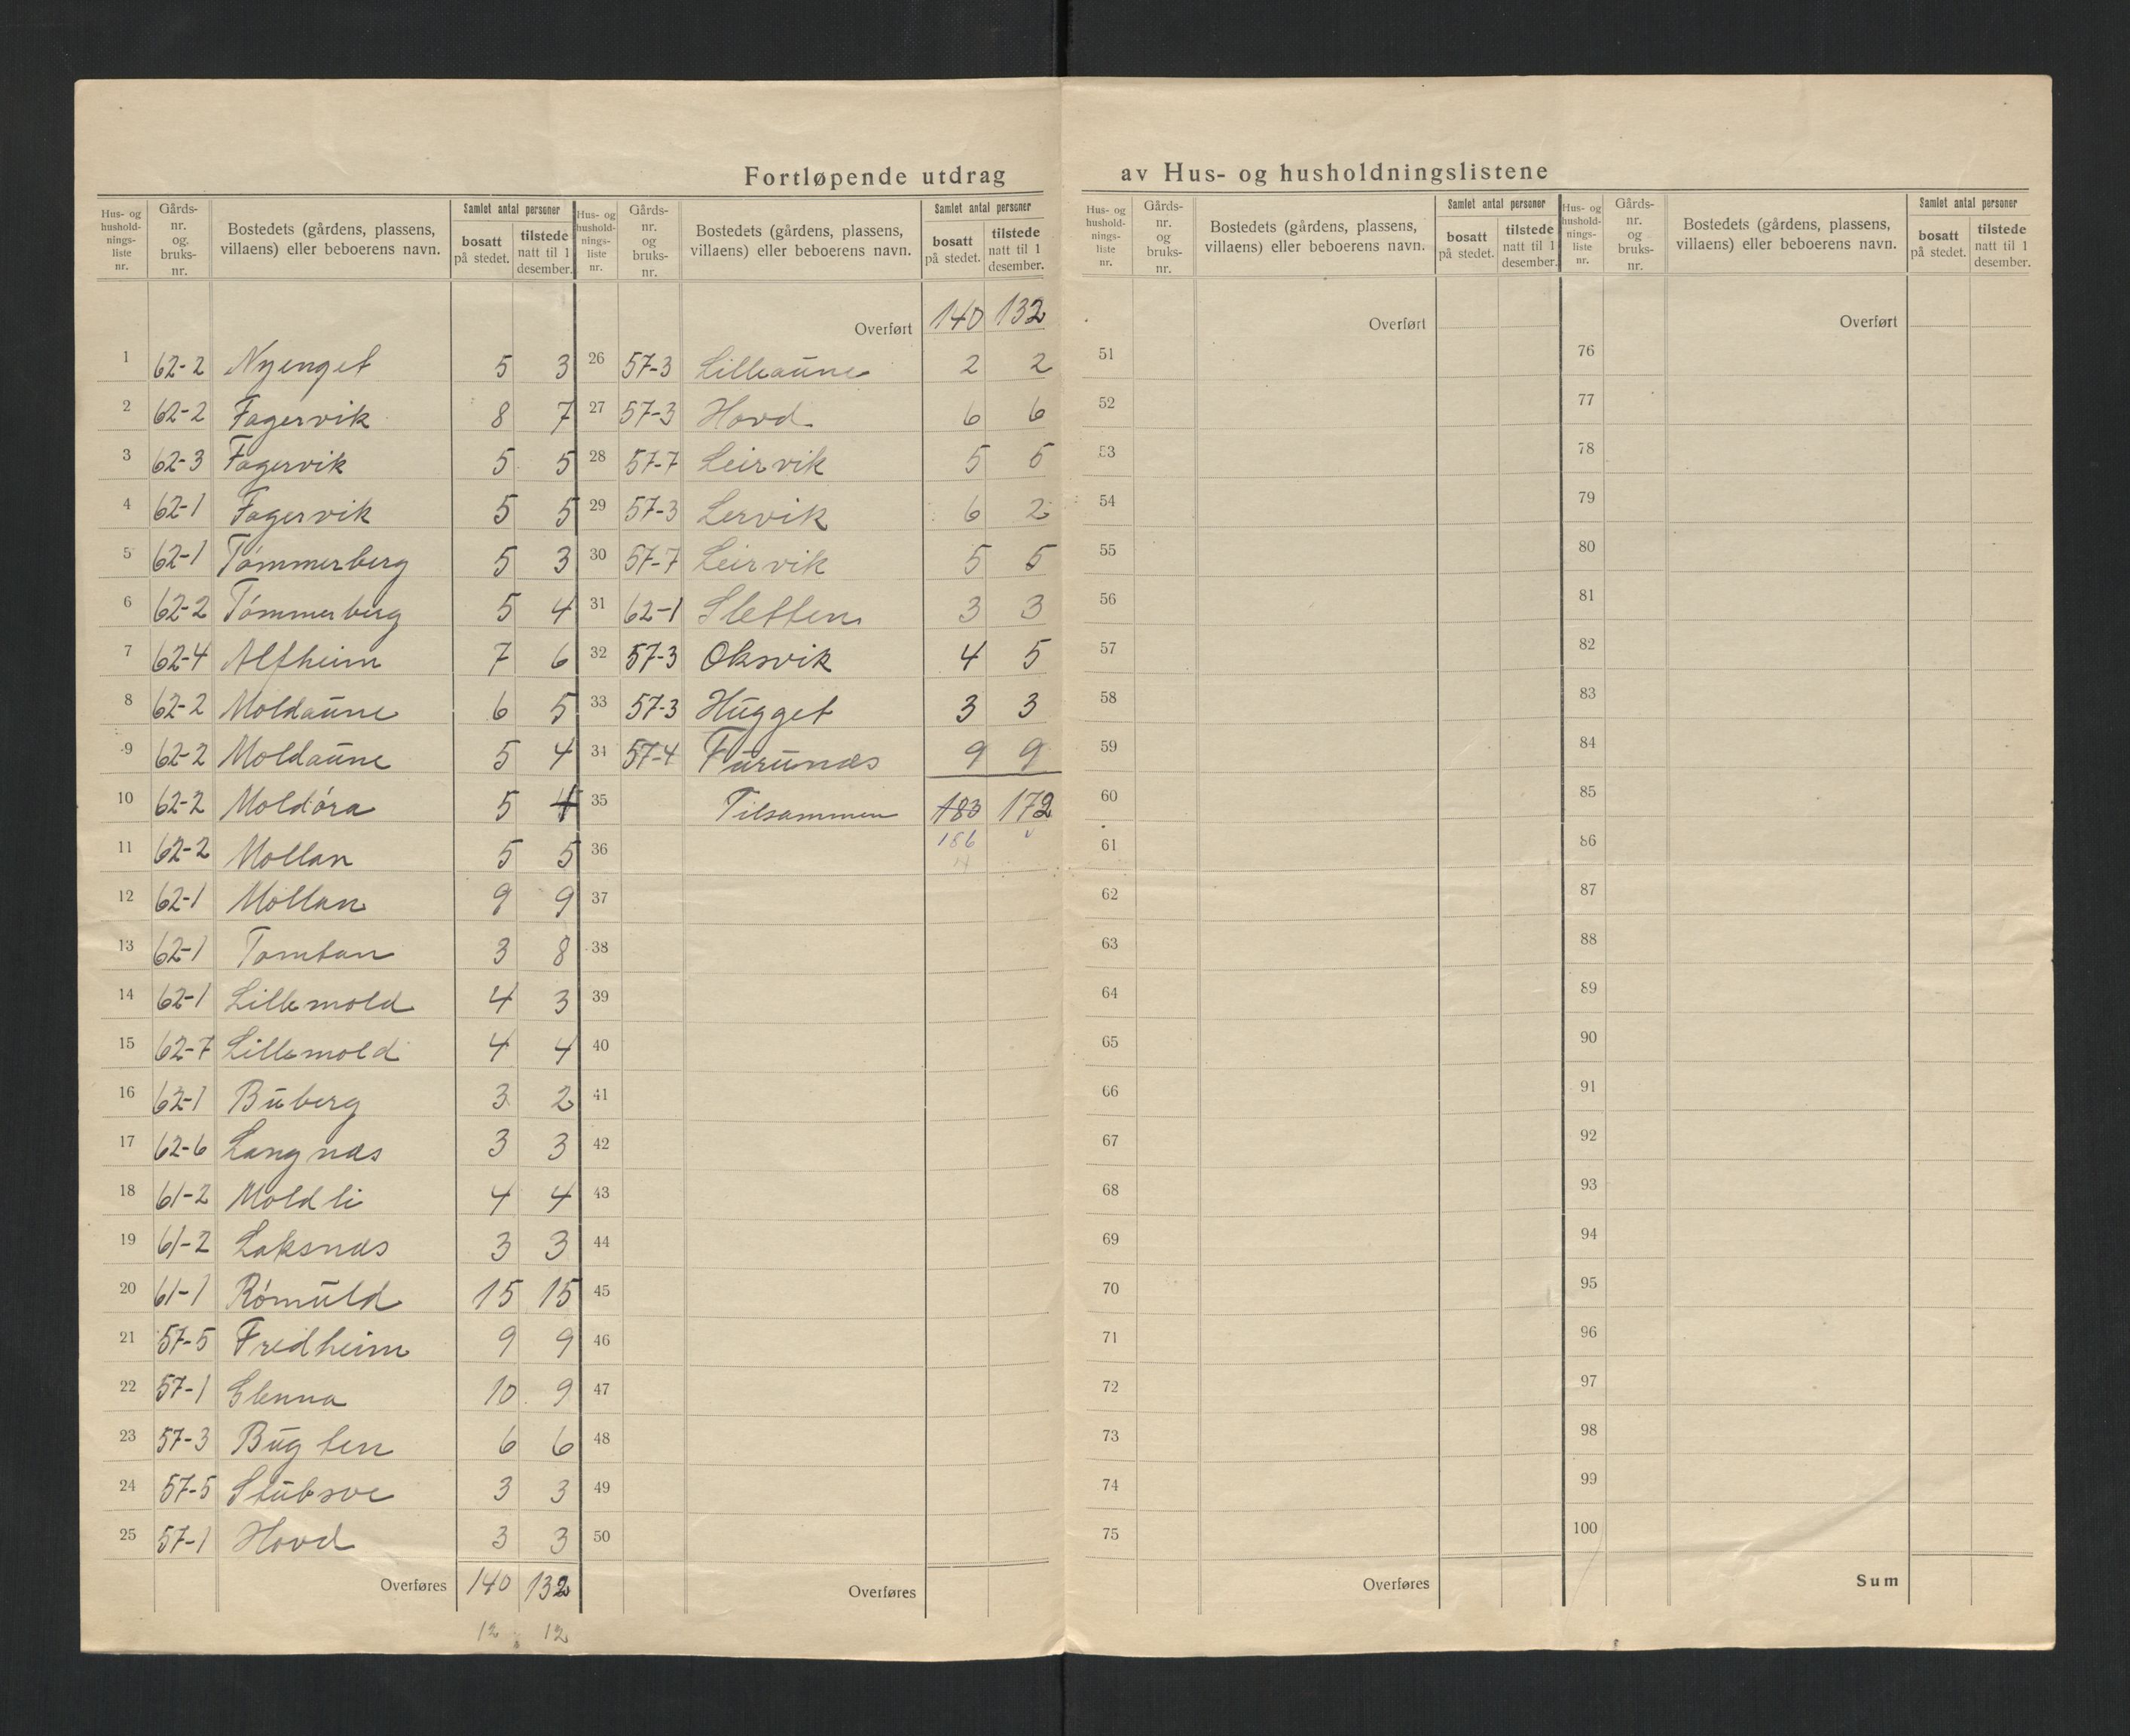 Fortløpende utdrag av Hus- og husholdningslistene
Hus- og husholdningsliste nr. Gårds-nr. og bruks-nr. Bostedets (gårdens, plassens, villaens) eller beboerens navn. Samlet antal personer bosatt på stedet. tilstede natt til 1 desember.
1 62-2 Nyenget 5 3
2 62-2 Fagervik 8 7
3 62-3 Fagervik 5 5
4 62-1 Fagervik 5 5
5 62-1 Tømmerberg 5 3
6 62-2 Tømmerberg 5 4
7 62-4 Alfheim 7 6
8 62-2 Moldaune 6 5
9 62-2 Moldaune 5 4
10 62-2 Moldøra 5 4
11 62-2 Mollan 5 5
12 62-1 Mollan 9 9
13 62-1 Tomtan 3 8
14 62-1 Lillemold 4 3
15 62-7 Lillemold 4 4
16 62-1 Buberg 3 2
17 62-6 Langnæs 3 3
18 61-2 Moldli 4 4
19 61-2 Laksnæs 3 3
20 61-1 Rømuld 15 15
21 57-5 Fredheim 9 9
22 57-1 Glenna 10 9
23 57-3 Bugten 6 6
24 57-5 Stubsve 3 3
25 57-1 Hovd 3 3
Overføres 140 132
12 12
Hus- og husholdningsliste nr. Gårds-nr. og bruks-nr. Bostedets (gårdens, plassens, villaens) eller beboerens navn. Samlet antal personer bosatt på stedet. tilstede natt til 1 desember.
Overført 140 132
26 57-3 Lilleaune 2 2
27 57-3 Hovd 6 6
28 57-7 Leirvik 5 5
29 57-3 Lervik 6 2
30 57-7 Leirvik 5 5
31 62-1 Sletten 3 3
32 57-3 Oksvik 4 5
33 57-3 Hugget 3 3
34 57-4 Furunæs 9 9
35 Tilsammen 183 172
36 186
37
38
39
40
41
42
43
44
45
46
47
48
49
50
Overføres
Hus- og husholdningsliste nr. Gårds-nr. og bruks-nr. Bostedets (gårdens, plassens, villaens) eller beboerens navn. Samlet antal personer bosatt på stedet. tilstede natt til 1 desember.
Overført
51
52
53
54
55
56
57
58
59
60
61
62
63
64
65
66
67
68
69
70
71
72
73
74
75
Overføres
Hus- og husholdningsliste nr. Gårds-nr. og bruks-nr. Bostedets (gårdens, plassens, villaens) eller beboerens navn. Samlet antal personer bosatt på stedet. tilstede natt til 1 desember.
Overført
76
77
78
79
80
81
82
83
84
85
86
87
88
89
90
91
92
93
94
95
96
97
98
99
100
Sum